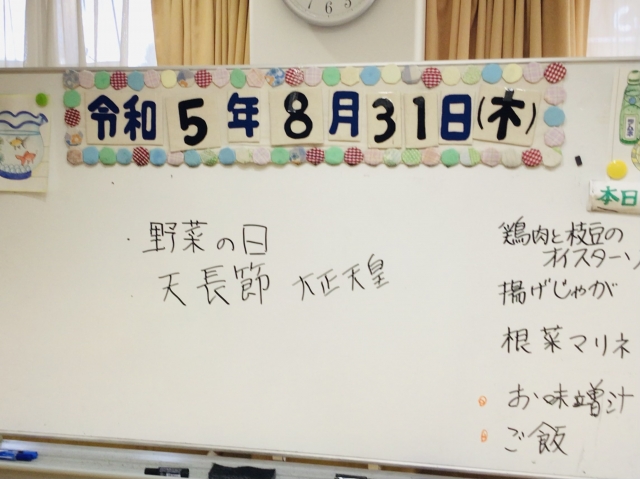 令和5年8月31日(木)
・野菜の日
天長節 大正天皇
本日
鶏肉と枝豆の
オイスターソ
揚げじゃが
根菜マリネ
お味噌汁
ご飯